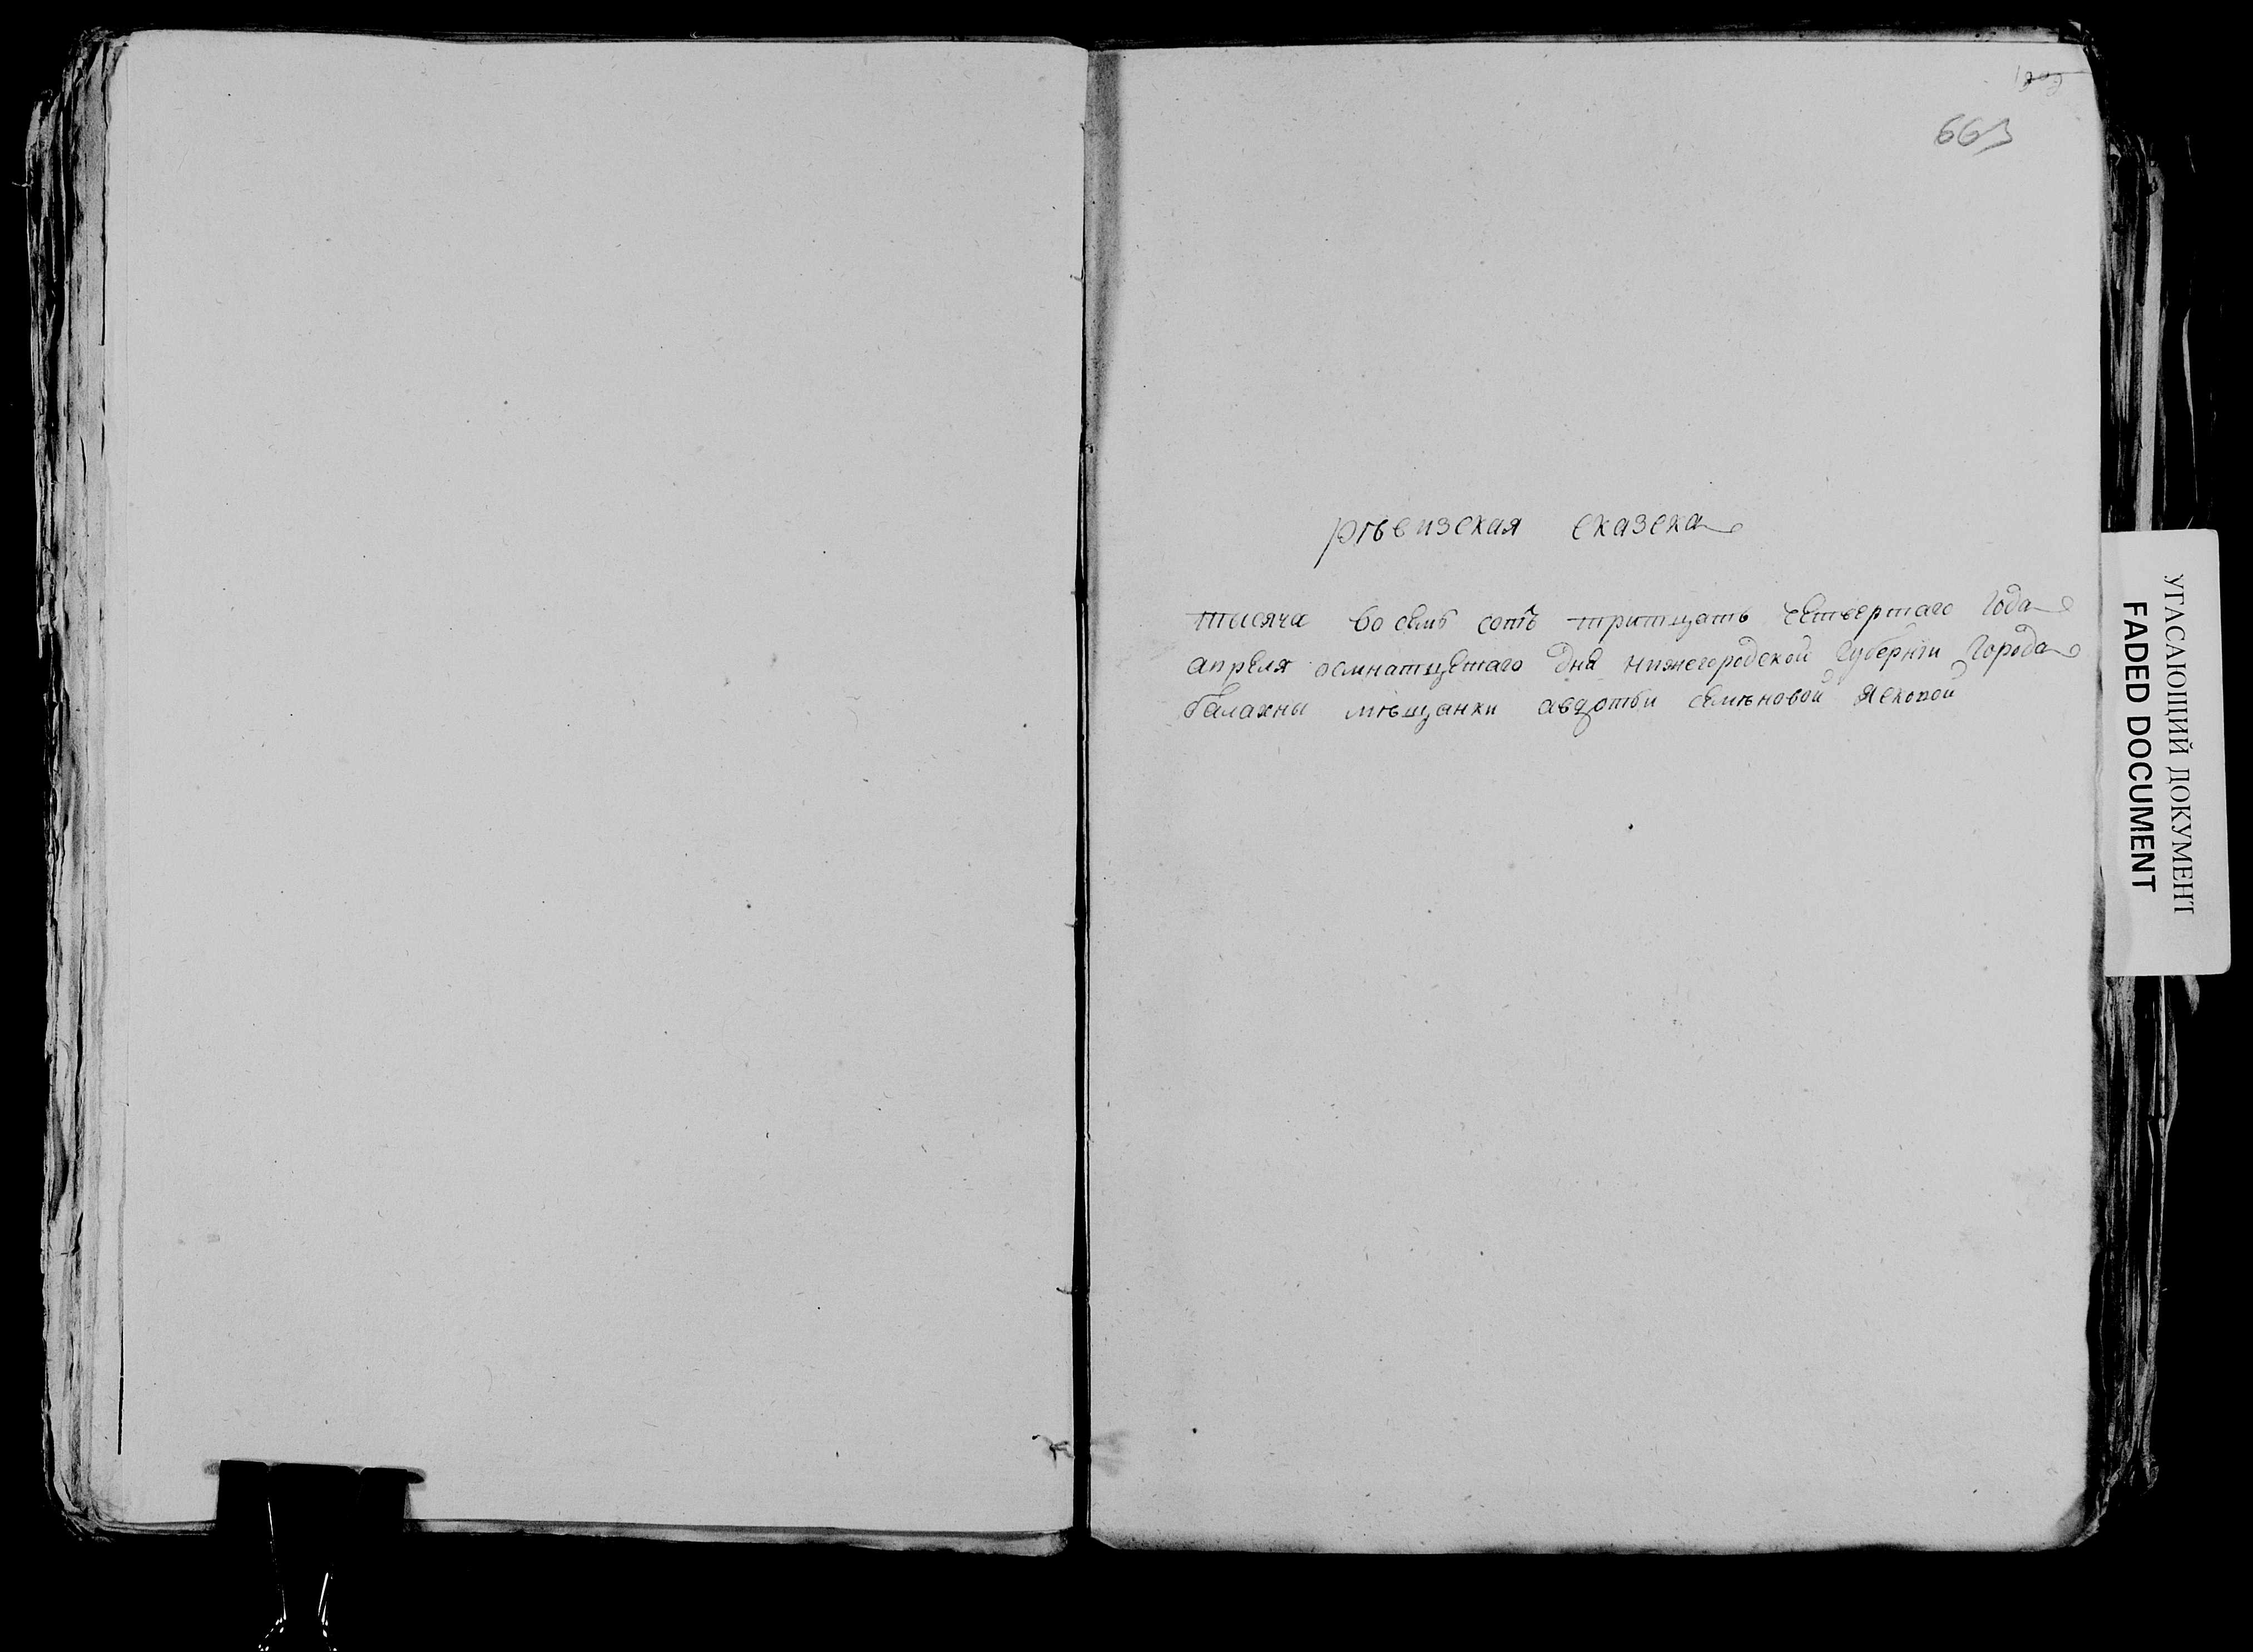 663
рѣвизская сказска
тысяча восемь сотъ тритцать четвертаго Года
апреля осмнатцетаго дня нижегородской Губерніи Города
балахны мѣщанки авдотьи семѣновой
УГАСАЮЩИЙ ДОКУМЕНТ
FADED DOCUMENT